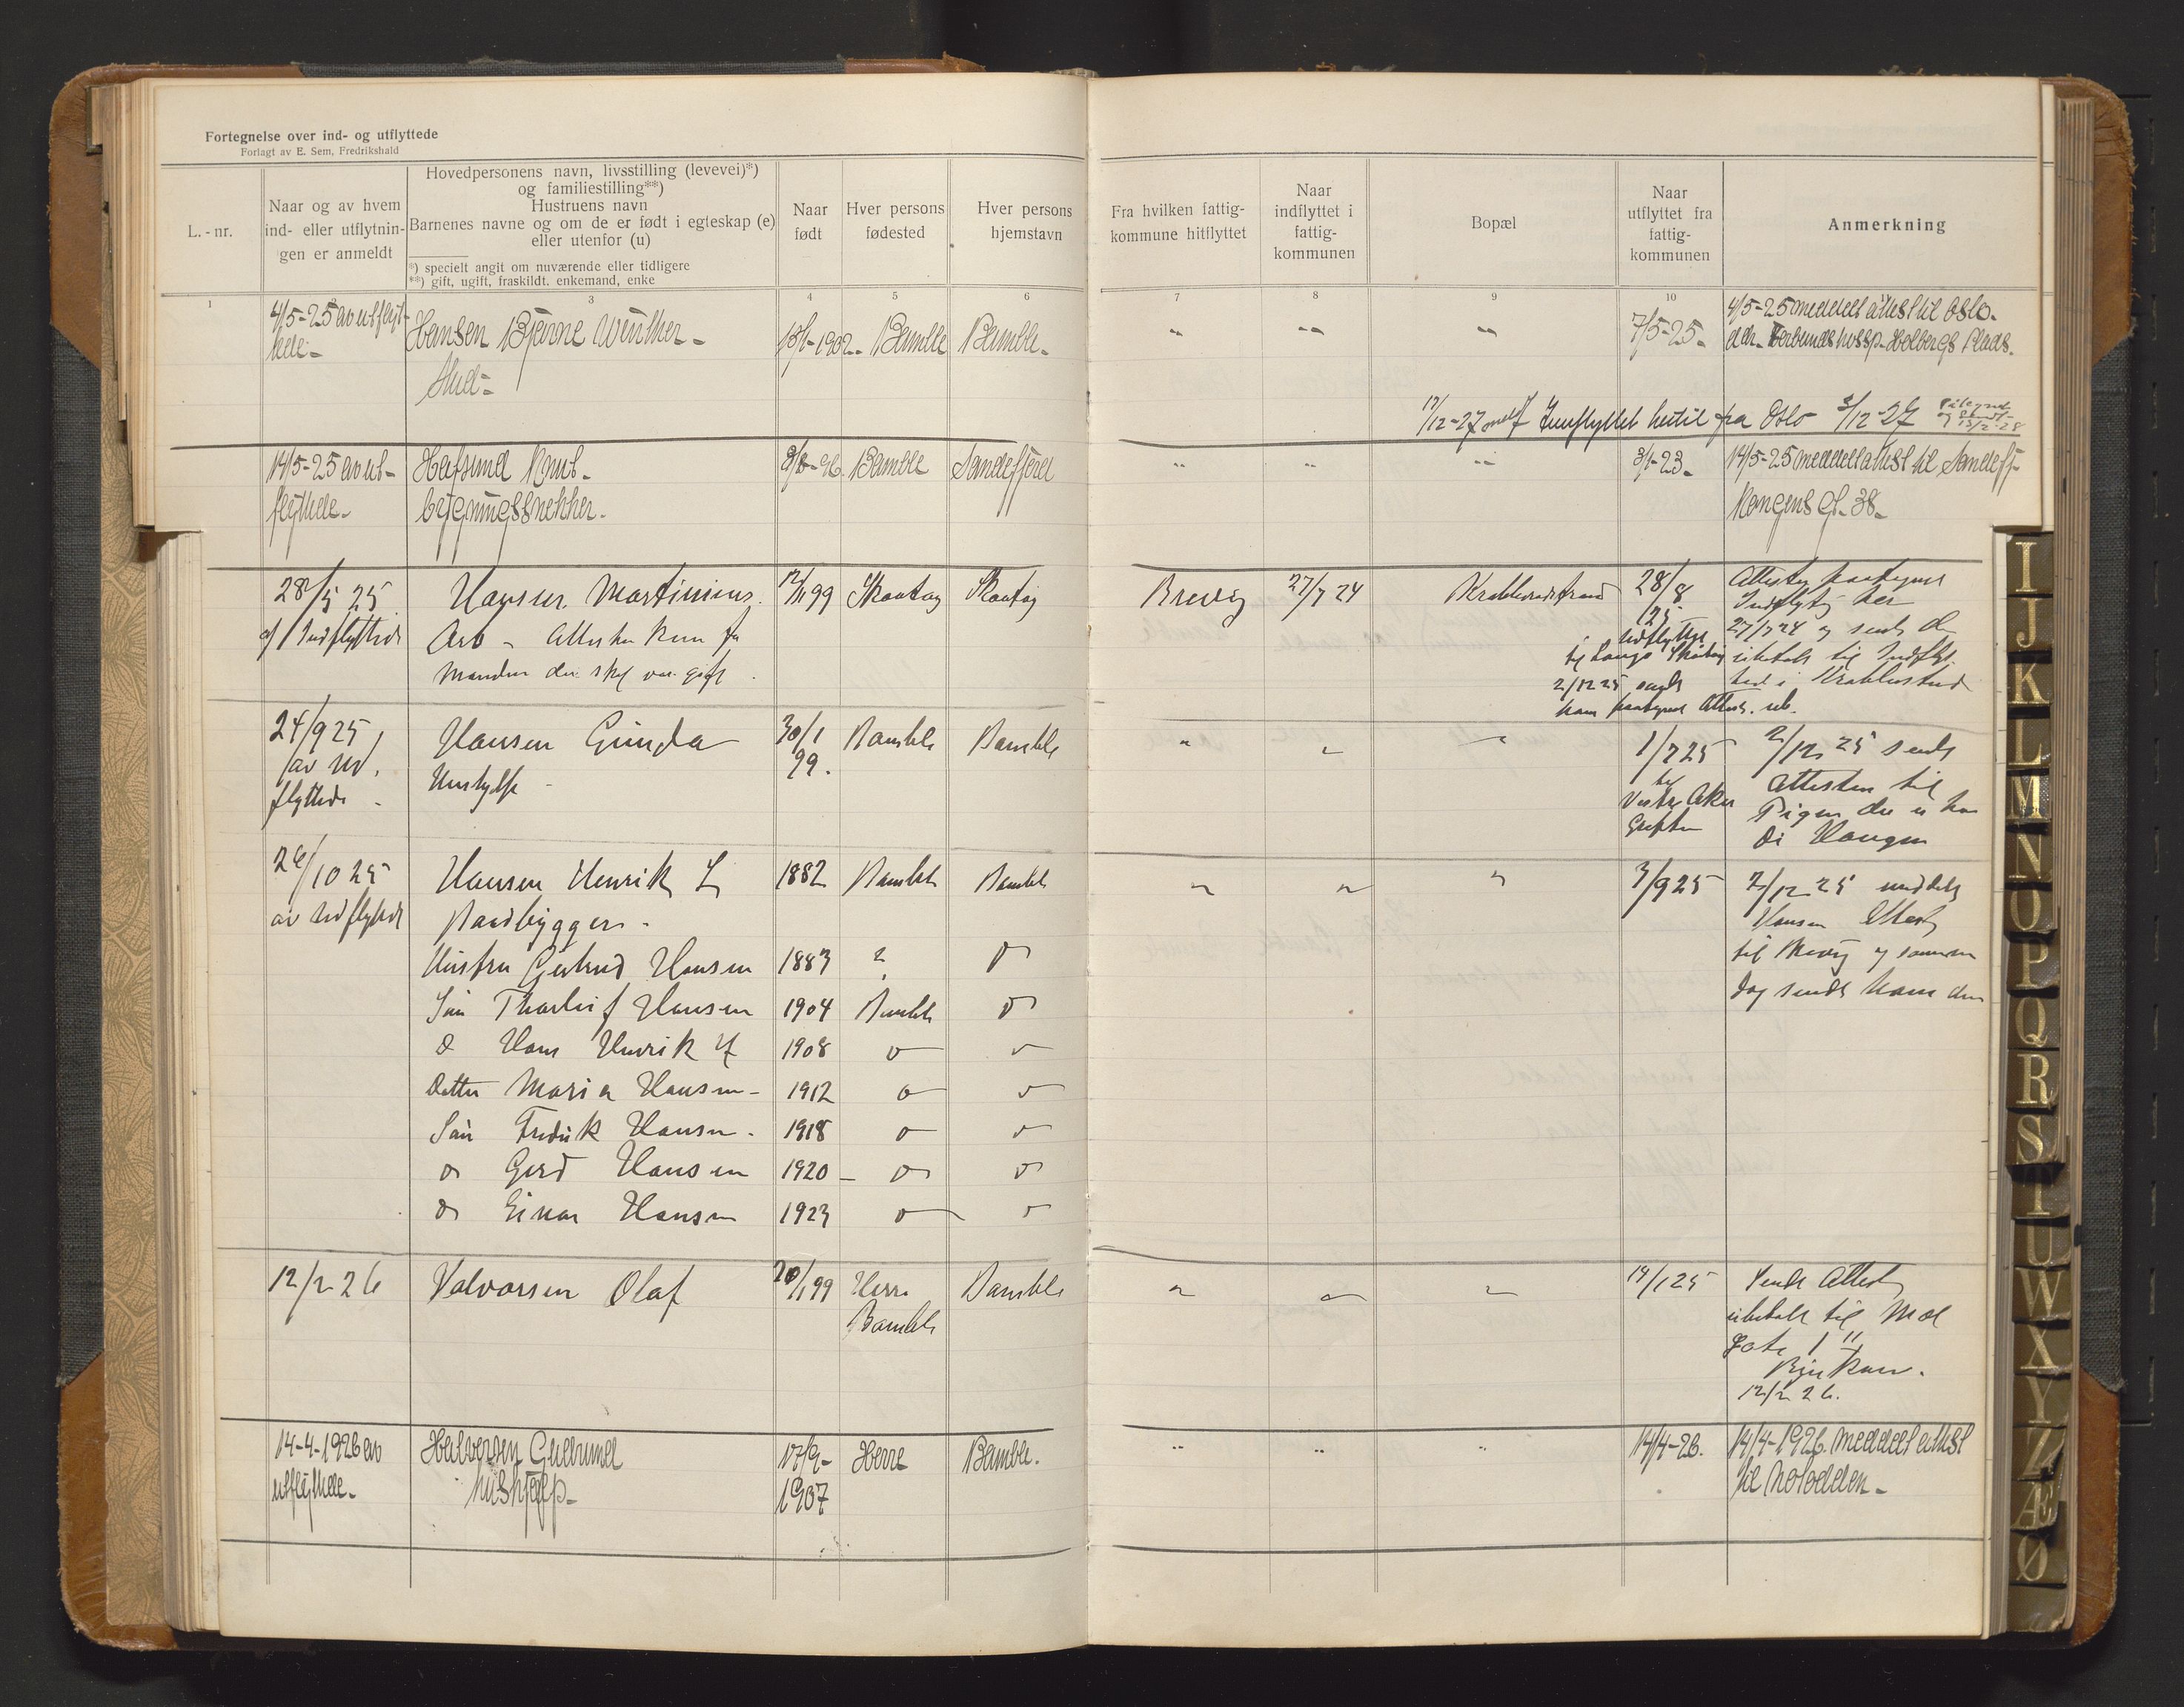 Fortegnelse over ind- og utflyttede
Forlagt av E. Sem, Fredrikshald
L.-nr.
Naar og av hvem
ind- eller utflytnin-
gen er anmeldt
Hovedpersonens navn, livsstilling (levevei)*)
og familiestilling**)
Hustruens navn
Barnenes navne og om de er født i egteskap (e)
eller utenfor (u)
*) specielt angit om nuværende eller tidligere
**) gift, ugift, fraskildt. enkemand, enke
Naar
født
Hver persons
fødested
Hver persons
hjemstavn
Fra hvilken fattig-
kommune hitflyttet
Naar
indflyttet i
fattig-
kommunen
Bopæl
Naar
utflyttet fra
fattig-
kommunen
Anmerkning
1 2 3 4 5 6 7 8 9 10
4/5-25 av utflyt-
tede-
Hansen Bjarne Winther-
Stud-
1902- Bamble Bamble-
" " " 7/5-25-
4/5-25 meddelt attest til Oslo-
Holbergs Plads.
/12-27 Innflyttet hertil fra Oslo 3/12-27
14/5-25 av ut-
flyttede-
Hafsund Knut-
bygningssnekker-
Bamble Sandefjord
" " 3/1-23-
14/5-25 meddelt attest til Sandefj-
Kongens G. 38-
28/5 25
af Indflyttede
Hansen Martinius
Arb - Attesten kun fra
Manden der skal være gift
12/11 99 Skaatøy Skaatøy
Brevig 27/7 24
28/8
25
Udflyttet
til Langø Skåtøy
2/12 25 sendt
ham paategnet Attest. ub.
Attesten paategnet
Indflyttet her
27/7 24 og sendt den
ubetalt til Indflyt.
24/9 25
av Ud.
flyttede -
Hansen Gunda
Hushjelp -
30/1
99.
Bamble Bamble
" " " 1/7 25
til
Vestre Aker
2/12 25 sendt
Attesten til
Pigen der er hos
Di Haugen
26/10 25
av Udflyttede
Hansen Henrik L
Baadbygger -
1882 Bamble Bamble
" " " 3/9 25
2/12 25 meddelt
Hansen Attest
til Brevig og samme
Dag sendt ham den
Hustru Gertrud Hansen 1883 ? Do
Søn Thorleif Hansen 1904 Bamble Do
Do Hans Henrik H 1908 Do Do
Datter Maria Hansen - 1912 Do Do
Søn Fredrik Hansen - 1918 Do Do
Do Gerd Hansen 1920 - Do Do
Do Einar Hansen 1923 Do Do
12/2 26
Halvorsen Olaf
20/1 99 Herre
Bamble
Bamble
" " " 19/1 25
Sendt Attest
ubetalt til Mæl
Gate 1"
Rjukan.
12/2 26.
14-4-1926 av
utflyttede-
Halvorsen Gudrund
hushjælp-
17/9-
1907
Herre Bamble.
" " " 14/4-26.
14/4-1926 meddelt attest
til Notodden-
I
J
K
L
M
N
O
P
Q
R
S
T
U
W
X
Y
Z
Æ
Ø